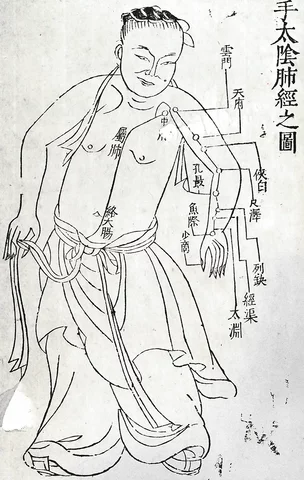 手太陰肺經之圖
雲門
中
天府
俠白
尺澤
孔最
列缺
經渠
太淵
魚際
少商
屬肺
絡大腸